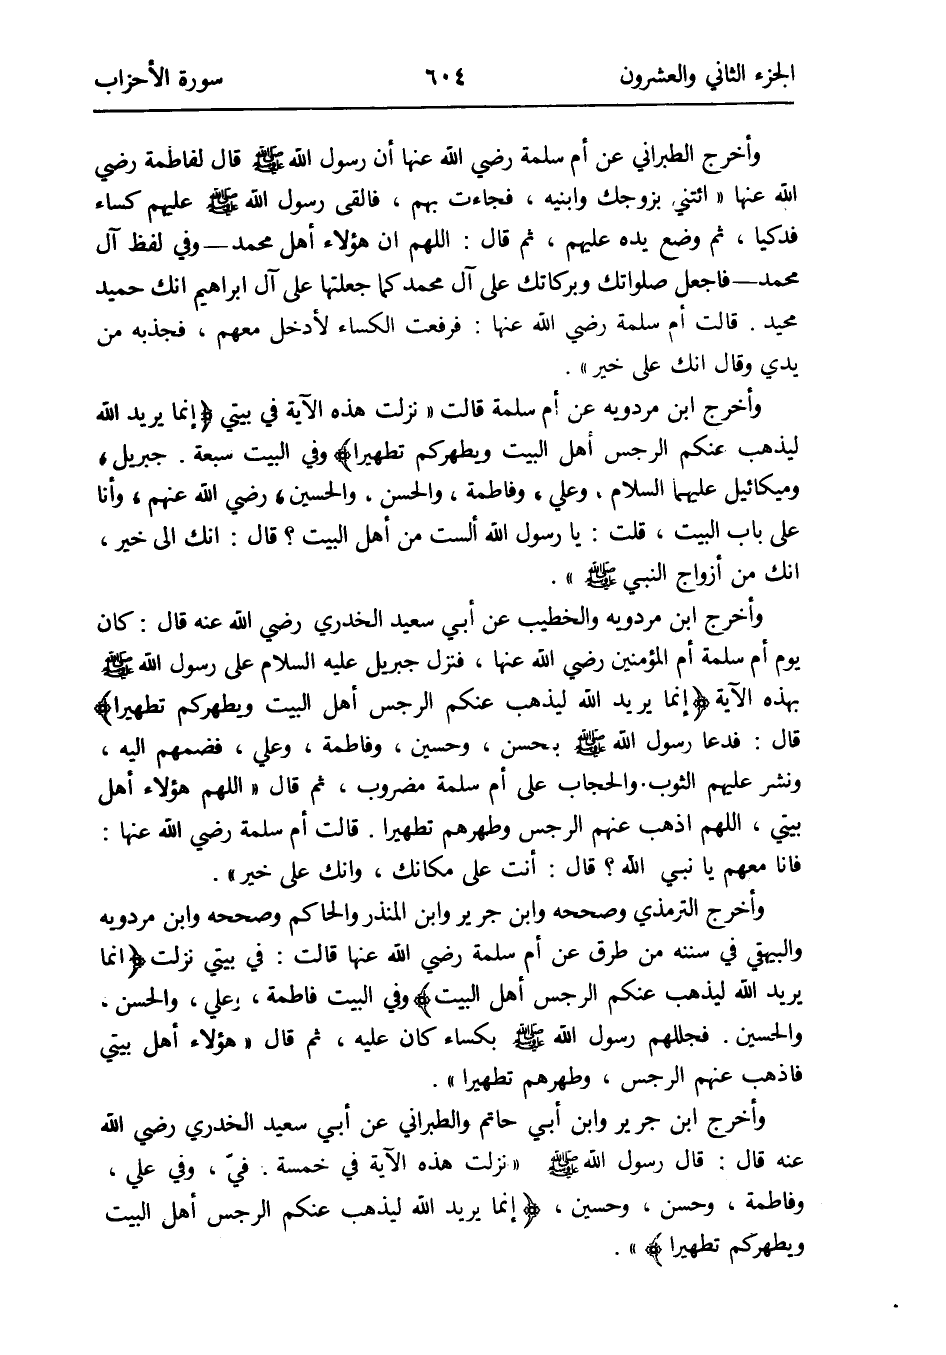 الجزء الثاني والعشرون ٦٠٤ سورة الأحزاب
وأخرج الطبراني عن أم سلمة رضي الله عنها أن رسول الله ﷺ قال لفاطمة رضي
الله عنها « ائتني بزوجك وابنيه ، فجاءت بهم ، فالقى رسول الله ﷺ عليهم كساء
فدكيا ، ثم وضع يده عليهم ، ثم قال : اللهم ان هؤلاء أهل محمد — وفي لفظ آل
محمد — فاجعل صلواتك وبركاتك على آل محمد كما جعلتها على آل ابراهيم انك حميد
مجيد . قالت أم سلمة رضي الله عنها : فرفعت الكساء لأدخل معهم ، فجذبه من
يدي وقال انك على خير » .
وأخرج ابن مردويه عن أم سلمة قالت « نزلت هذه الآية في بيتي ﴿إنما يريد الله
ليذهب عنكم الرجس أهل البيت ويطهركم تطهيرا﴾ وفي البيت سبعة . جبريل ،
وميكائيل عليهما السلام ، وعلي ، وفاطمة ، والحسن ، والحسين ، رضي الله عنهم ، وأنا
على باب البيت ، قلت : يا رسول الله ألست من أهل البيت ؟ قال : انك الى خير ،
انك من أزواج النبي ﷺ » .
وأخرج ابن مردويه والخطيب عن أبي سعيد الخدري رضي الله عنه قال : كان
يوم أم سلمة أم المؤمنين رضي الله عنها ، فنزل جبريل عليه السلام على رسول الله ﷺ
بهذه الآية ﴿إنما يريد الله ليذهب عنكم الرجس أهل البيت ويطهركم تطهيرا﴾
قال : فدعا رسول الله ﷺ بحسن ، وحسين ، وفاطمة ، وعلي ، فضمهم اليه ،
ونشر عليهم الثوب . والحجاب على أم سلمة مضروب ، ثم قال « اللهم هؤلاء أهل
بيتي ، اللهم اذهب عنهم الرجس وطهرهم تطهيرا . قالت أم سلمة رضي الله عنها :
فانا معهم يا نبي الله ؟ قال : أنت على مكانك ، وانك على خير » .
وأخرج الترمذي وصححه وابن جرير وابن المنذر والحاكم وصححه وابن مردويه
والبيهقي في سننه من طرق عن أم سلمة رضي الله عنها قالت : في بيتي نزلت ﴿انما
يريد الله ليذهب عنكم الرجس أهل البيت﴾ وفي البيت فاطمة ، وعلي ، والحسن ،
والحسين . فجللهم رسول الله ﷺ بكساء كان عليه ، ثم قال « هؤلاء أهل بيتي
فاذهب عنهم الرجس ، وطهرهم تطهيرا » .
وأخرج ابن جرير وابن أبي حاتم والطبراني عن أبي سعيد الخدري رضي الله
عنه قال : قال رسول الله ﷺ « نزلت هذه الآية في خمسة . فيّ ، وفي علي ،
وفاطمة ، وحسن ، وحسين ، ﴿إنما يريد الله ليذهب عنكم الرجس أهل البيت
ويطهركم تطهيرا ﴾ » .